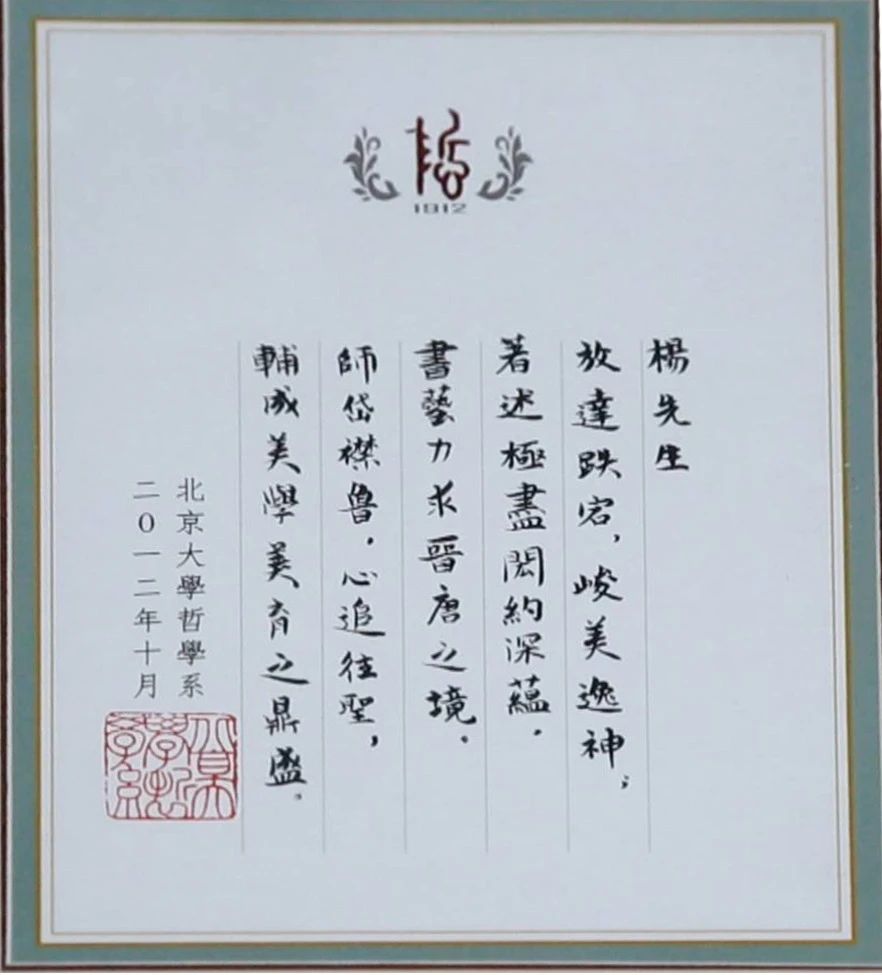 哲
1912
楊先生
放達跌宕，峻美逸神；
著述極盡閎約深蘊，
書藝力求晉唐之境。
師岱襟魯，心追往聖，
輔成美學美育之鼎盛。
北京大學哲學系
二〇一二年十月
北京大學哲學系